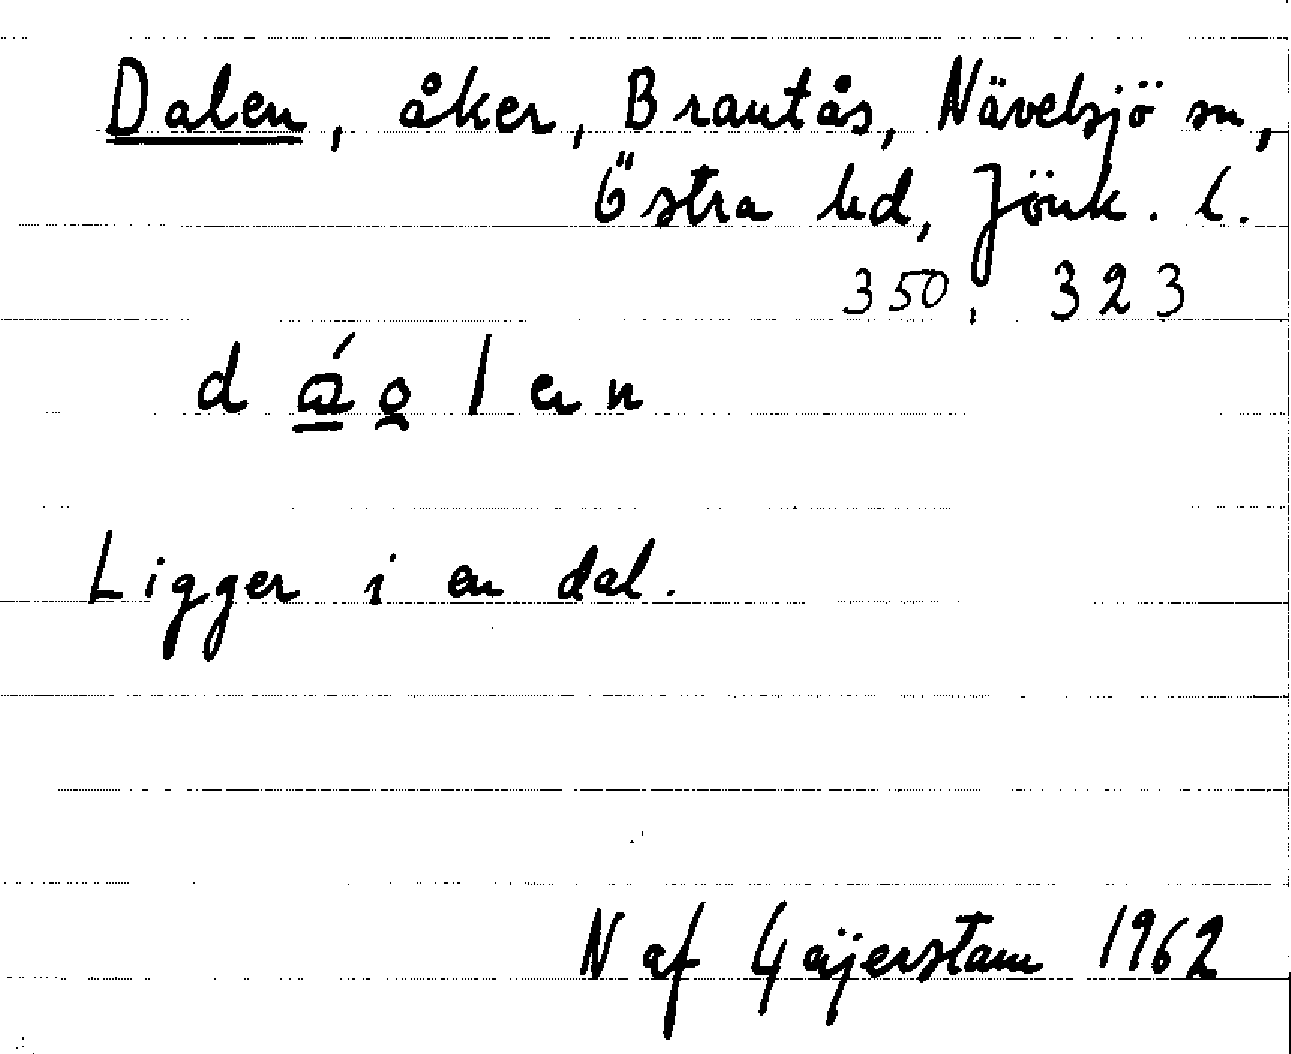 Dalen, åker, Brantås, Nävelsjö sn,
Östra hd, Jönk. l.
350; 323
Ligger i en dal.
N af Gäijerstam 1962